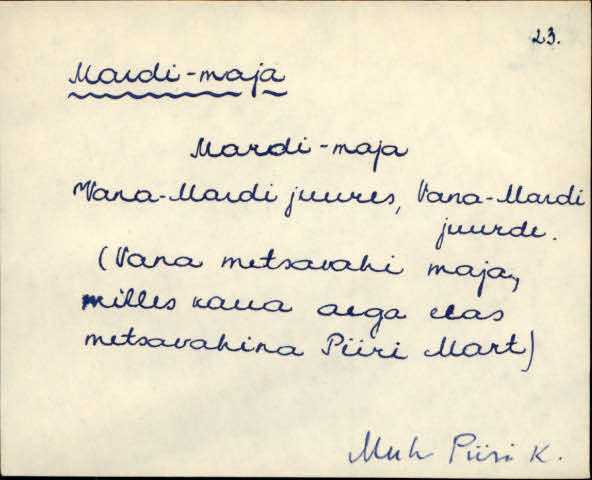 23.
Mardi-maja
Mardi-maja
Vana-Mardi juures, Vana-Mardi
juurde.
(Vana metsavahi maja,
milles kaua aega elas
metsavahina Piiri Mart)
Muh Piiri K.